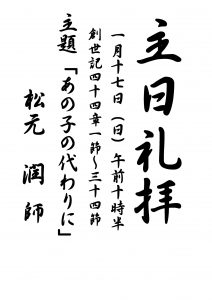 主日礼拝
一月十七日（日）午前十時半
創世記四十四章一節～三十四節
主題「あの子の代わりに」
松元　潤師